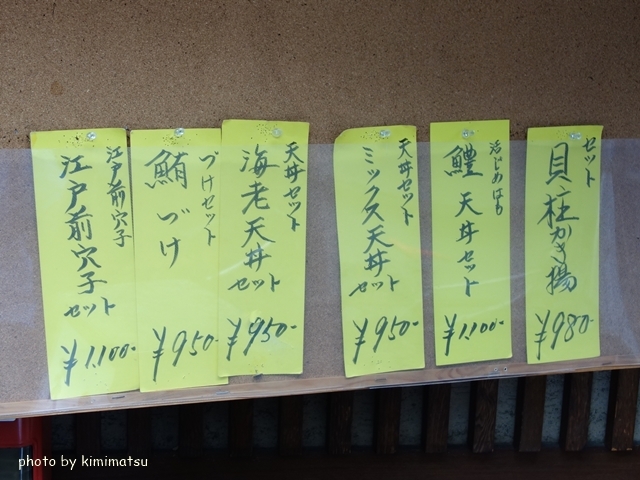 セット
貝柱かき揚
¥980-
活じめはも
鱧天丼セット
¥1,100-
天丼セット
ミックス天丼セット
¥950-
天丼セット
海老天丼セット
¥950-
づけセット
鮪づけ
¥950-
江戸前穴子
江戸前穴子セット
¥1,100-
photo by kimimatsu